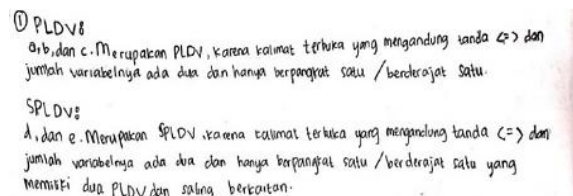 ① PLDV:
a, b, dan c. Merupakan PLDV, karena kalimat terbuka yang mengandung tanda <=> dan
jumlah variabelnya ada dua dan hanya berpangkat satu / berderajat satu.
SPLDV:
d, dan e. Merupakan SPLDV, karena kalimat terbuka yang mengandung tanda (=) dan
jumlah variabelnya ada dua dan hanya berpangkat satu / berderajat satu yang
memiliki dua PLDV dan saling berkaitan.